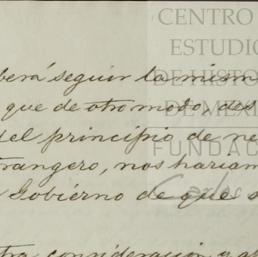 CENTRO
ESTUDIO
DE HISTOR
DE MÉXI
FUNDAC
berá seguir la mism
que de otro modo, des
del principio de ne
trangero, nos hariam
Gobierno de que s
tra consideración y a